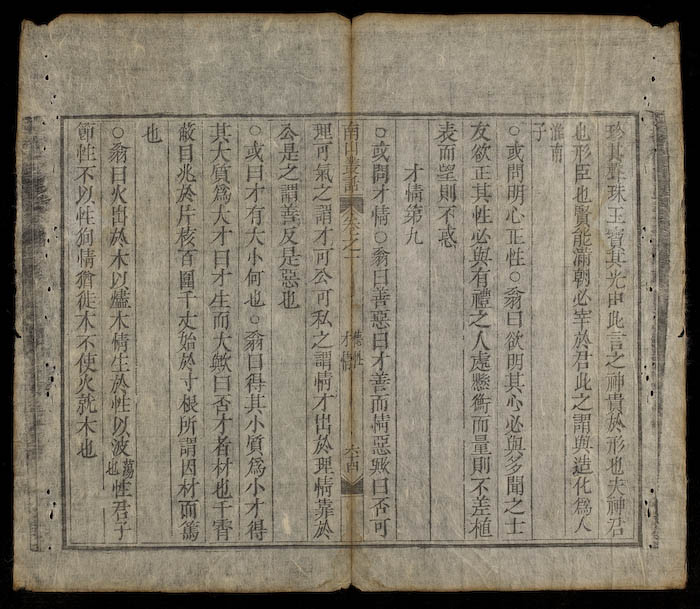 珍其聲珠玉寶其光由此言之神貴於形也夫神君
也形臣也賢能滿朝必宰於君此之謂與造化爲人
淮南子
○或問明心正性○翁曰欲明其心必與多聞之士
友欲正其性必與有禮之人處懸衡而量則不差植
表而望則不惑
才情第九
○或問才情○翁曰善惡曰才善而情惡歟曰否可
南山叢話 卷之一 才情 六十四
理可氣之謂才可公可私之謂情才出於理情靠於
公是之謂善反是惡也
○或曰才有大小何也○翁曰得其小質爲小才得
其大質爲大才曰才生而大歟曰否才者材也千霄
蔽目兆於片核百圍千丈始於寸根所謂因材而篤
也
○翁曰火出於木以燼木情生於性以波蕩也性君子
節性不以性狥情猶徙木不使火就木也